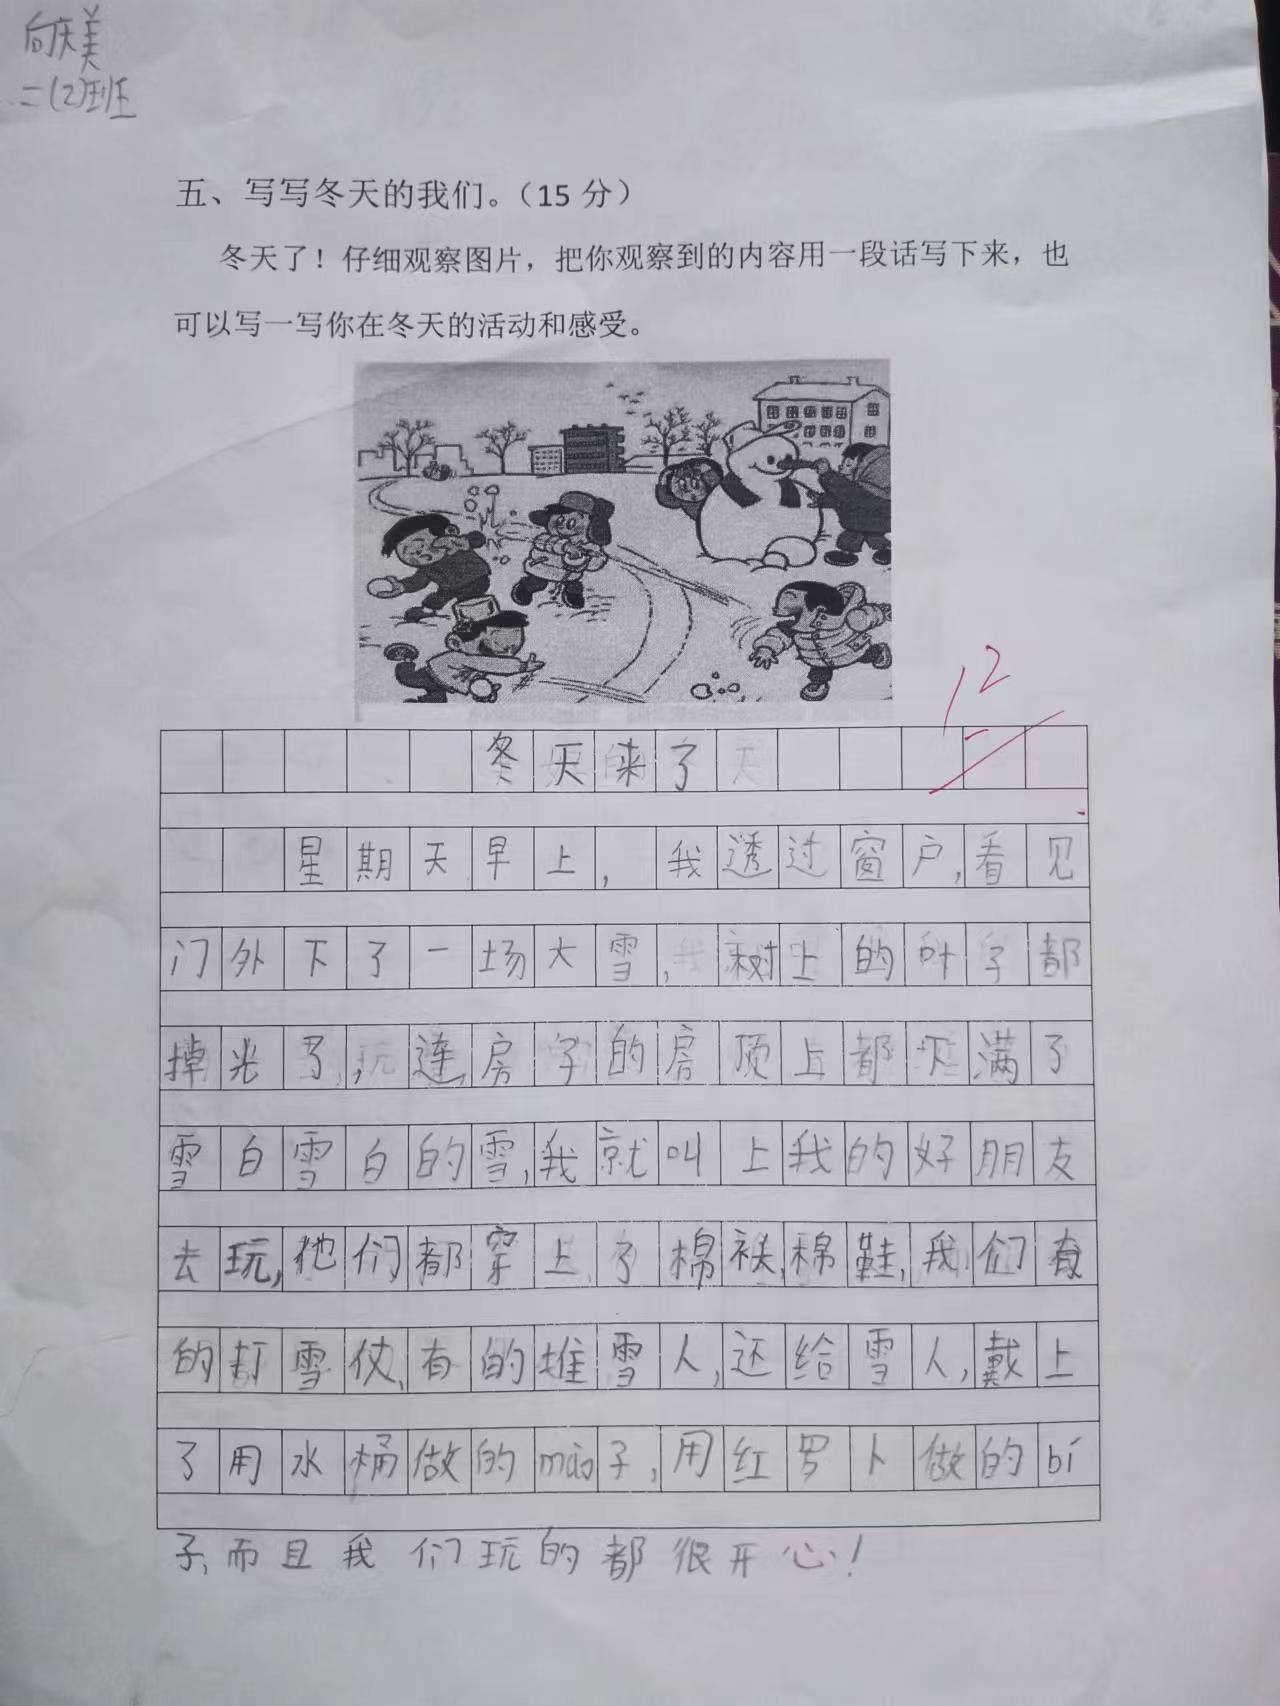 向庆美
二(2)班
五、写写冬天的我们。（15 分）
冬天了！仔细观察图片，把你观察到的内容用一段话写下来，也
可以写一写你在冬天的活动和感受。
12
冬天来了
星期天早上，我透过窗户，看见
门外下了一场大雪，树上的叶子都
掉光了，连房子的房顶上都下满了
雪白雪白的雪，我就叫上我的好朋友
去玩，他们都穿上了棉袄，棉鞋，我们有
的打雪仗、有的堆雪人，还给雪人，戴上
了用水桶做的mào子，用红罗卜做的bí
子，而且我们玩的都很开心！